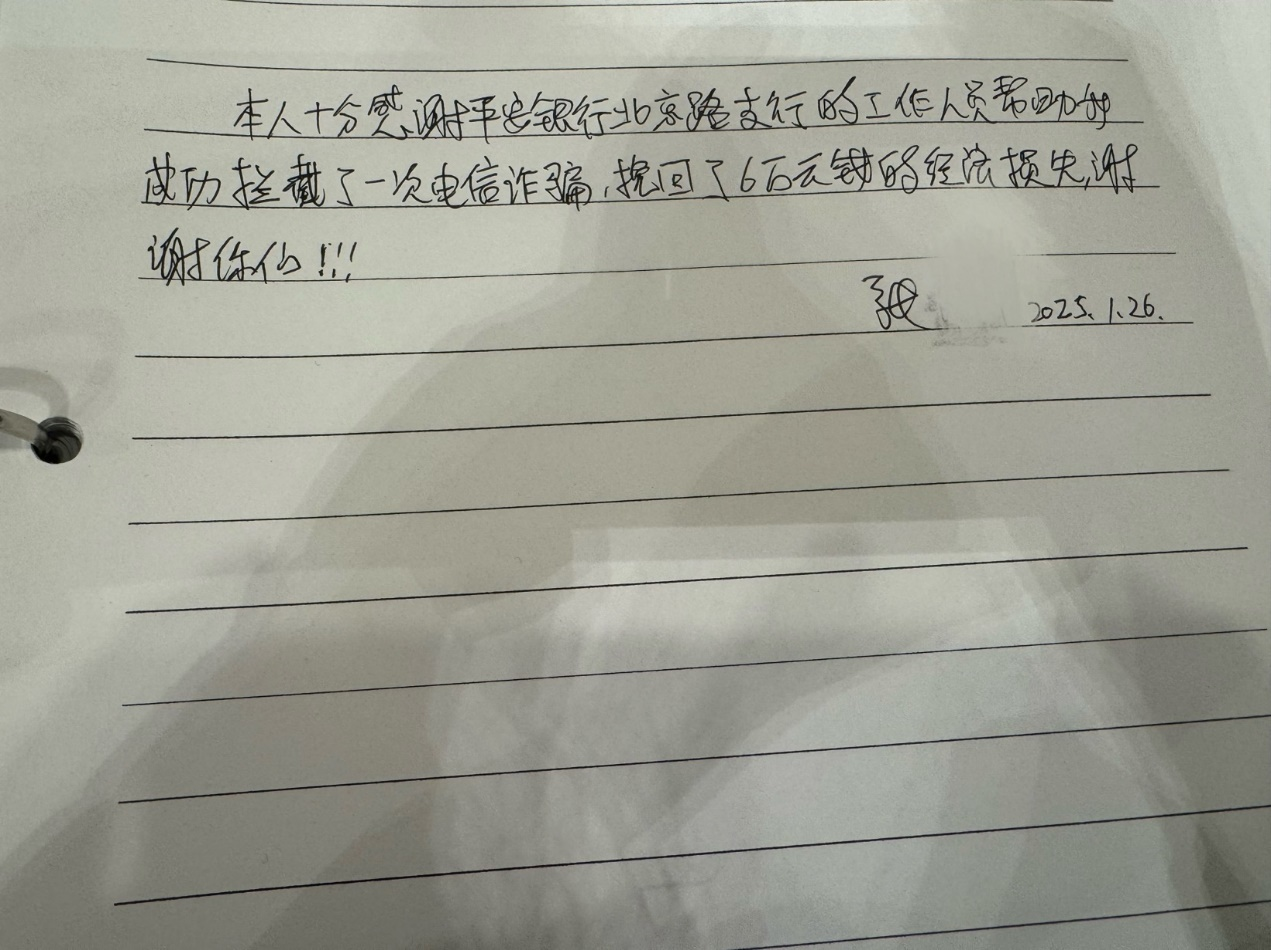 本人十分感谢平安银行北京路支行的工作人员帮助我
成功拦截了一次电信诈骗,挽回了6万元钱的经济损失,谢
谢你们!!!
张 2025.1.26.